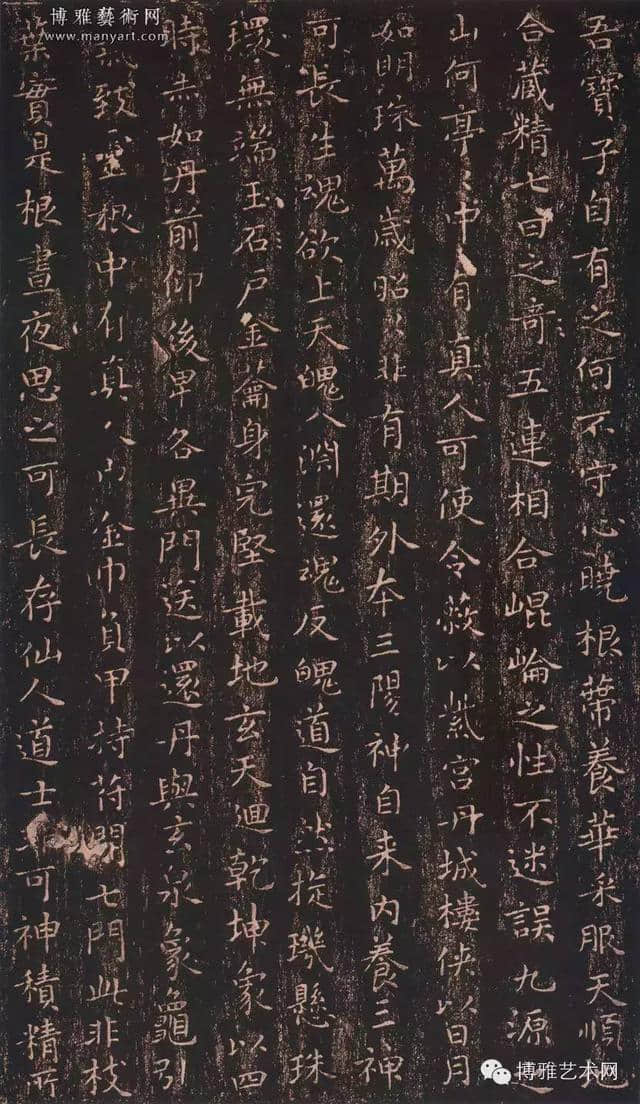 博雅藝術网
www.manyart.com
吾寶子自有之何不守心曉根蔕養華采服天順地
合藏精七日之奇五連相合崐崘之性不迷誤九源之
山何亭々中有真人可使令蔽以紫宮丹城樓俠以日月
如明珠萬歲昭々非有期外本三陽神自来内養三神
可長生魂欲上天魄入淵還魂反魄道自然璣懸珠
環無端玉石戶金籥身完堅載地玄天迴乾坤象以四
時赤如丹前仰後卑各異門送以還丹與玄泉象龜引
氣致靈根中有真人巾金巾負甲持符開七門此非枝
葉實是根晝夜思之可長存仙人道士非可神積精所
博雅艺术网